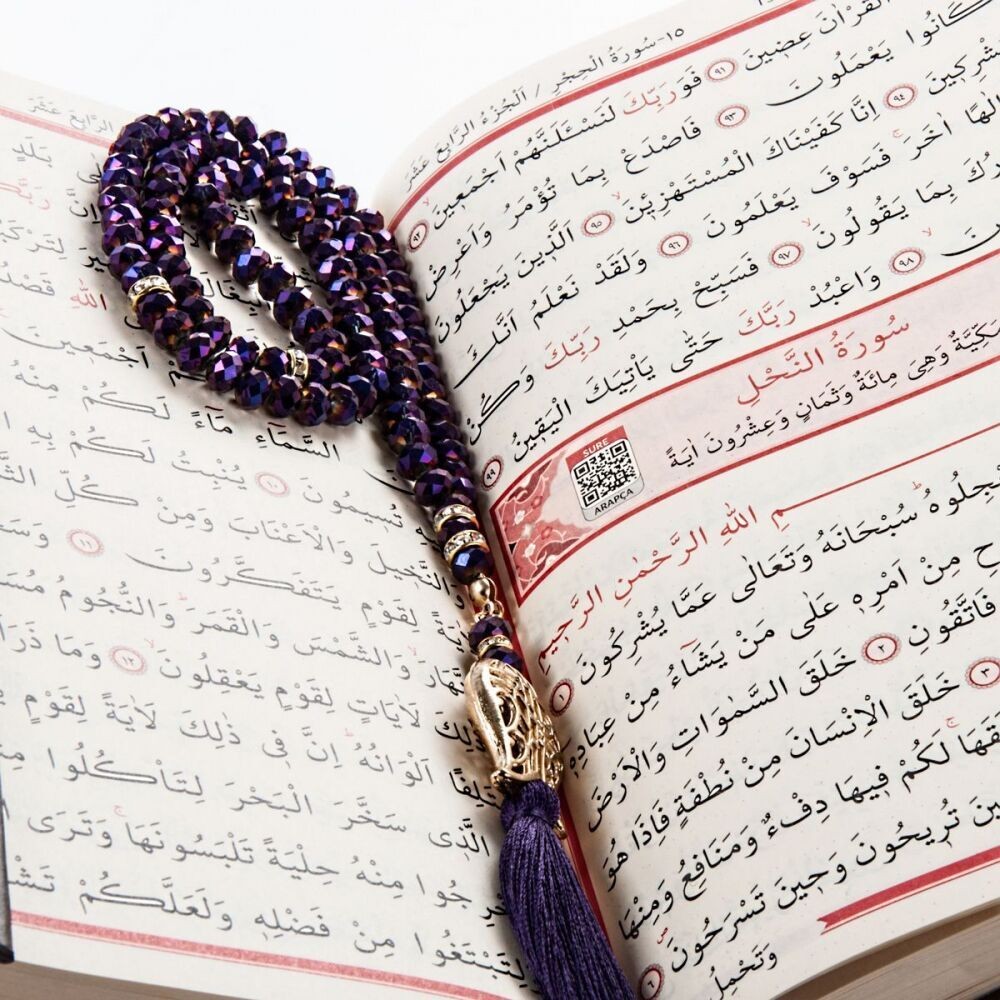 ١٥-سُورَةُ الْحِجْرِ / اَلْجُزْءُ الرَّابِعَ عَشَرَ
الْقُرْاٰنَ عِضٖينَ ٩١ فَوَرَبِّكَ لَنَسْـَٔلَنَّهُمْ اَجْمَعٖينَ ٩٢
كَانُوا يَعْمَلُونَ ٩٣ فَاصْدَعْ بِمَا تُؤْمَرُ وَاَعْرِضْ
الْمُشْرِكٖينَ ٩٤ اِنَّا كَفَيْنَاكَ الْمُسْتَهْزِءٖينَ ٩٥ اَلَّذٖينَ يَجْعَلُونَ
اِلٰهًا اٰخَرَ فَسَوْفَ يَعْلَمُونَ ٩٦ وَلَقَدْ نَعْلَمُ اَنَّكَ
بِمَا يَقُولُونَ ٩٧ فَسَبِّحْ بِحَمْدِ رَبِّكَ وَكُنْ
٩٨ وَاعْبُدْ رَبَّكَ حَتّٰى يَأْتِيَكَ الْيَقٖينُ ٩٩
سُورَةُ النَّحْلِ
مَكِّيَّةٌ وَهِىَ مِائَةٌ وَثَمَانٍ وَعِشْرُونَ اٰيَةً
SURE
ARAPÇA
ـمِ اللهِ الرَّحْمٰنِ الرَّحٖيمِ
ـجِلُوهُ سُبْحَانَهُ وَتَعَالٰى عَمَّا يُشْرِكُونَ ١
مِنْ اَمْرِهٖ عَلٰى مَنْ يَشَٓاءُ مِنْ عِبَادِهٖ
فَاتَّقُونِ ٢ خَلَقَ السَّمٰوَاتِ وَالْاَرْضَ
٣ خَلَقَ الْاِنْسَانَ مِنْ نُطْفَةٍ فَاِذَا هُوَ
لَكُمْ فٖيهَا دِفْءٌ وَمَنَافِعُ وَمِنْهَا
تُرٖيحُونَ وَحٖينَ تَسْرَحُونَ ٦
وَتَحْمِلُ
الرَّابِعَ عَشَرَ
بَلَدٍ
لِتَرْكَبُـ
اللهِ قَصْدُ
اَجْمَعٖينَ
السَّمَٓاءِ مَٓاءً لَكُمْ مِنْهُ
تُسٖيمُونَ ١٠ يُنْبِتُ لَكُمْ بِهِ
وَالنَّخٖيلَ وَالْاَعْنَابَ وَمِنْ كُلِّ
لِقَوْمٍ يَتَفَكَّرُونَ ١١ وَسَـ
وَالشَّمْسَ وَالْقَمَرَ وَالنُّجُومُ
لَاٰيَاتٍ لِقَوْمٍ يَعْقِلُونَ ١٢ وَمَا ذَرَاَ
اَلْوَانُهُ اِنَّ فٖى ذٰلِكَ لَاٰيَةً لِقَوْمٍ
الَّذٖى سَخَّرَ الْبَحْرَ لِتَأْكُلُوا
مِنْهُ حِلْيَةً تَلْبَسُونَهَا وَتَرَى
لِتَبْتَغُوا مِنْ فَضْلِهٖ وَلَعَلَّكُمْ